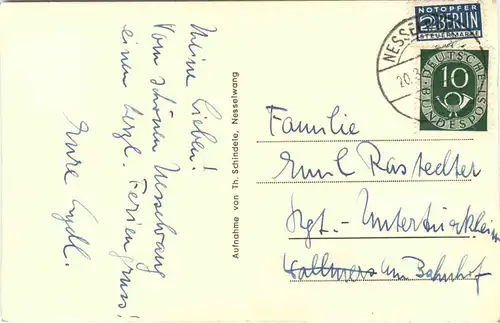 Meine Lieben!
Vom schönen Nesselwang
einen herzl. Feriengruss!
Eure
Aufnahme von Th. Schindele, Nesselwang
NOTOPFER
2 BERLIN
STEUERMARKE
NESSEL
20.8.
DEUTSCHE BUNDESPOST
10
Familie
Emil Rastedter
Stgt.-Untertürkheim
am Bahnhof